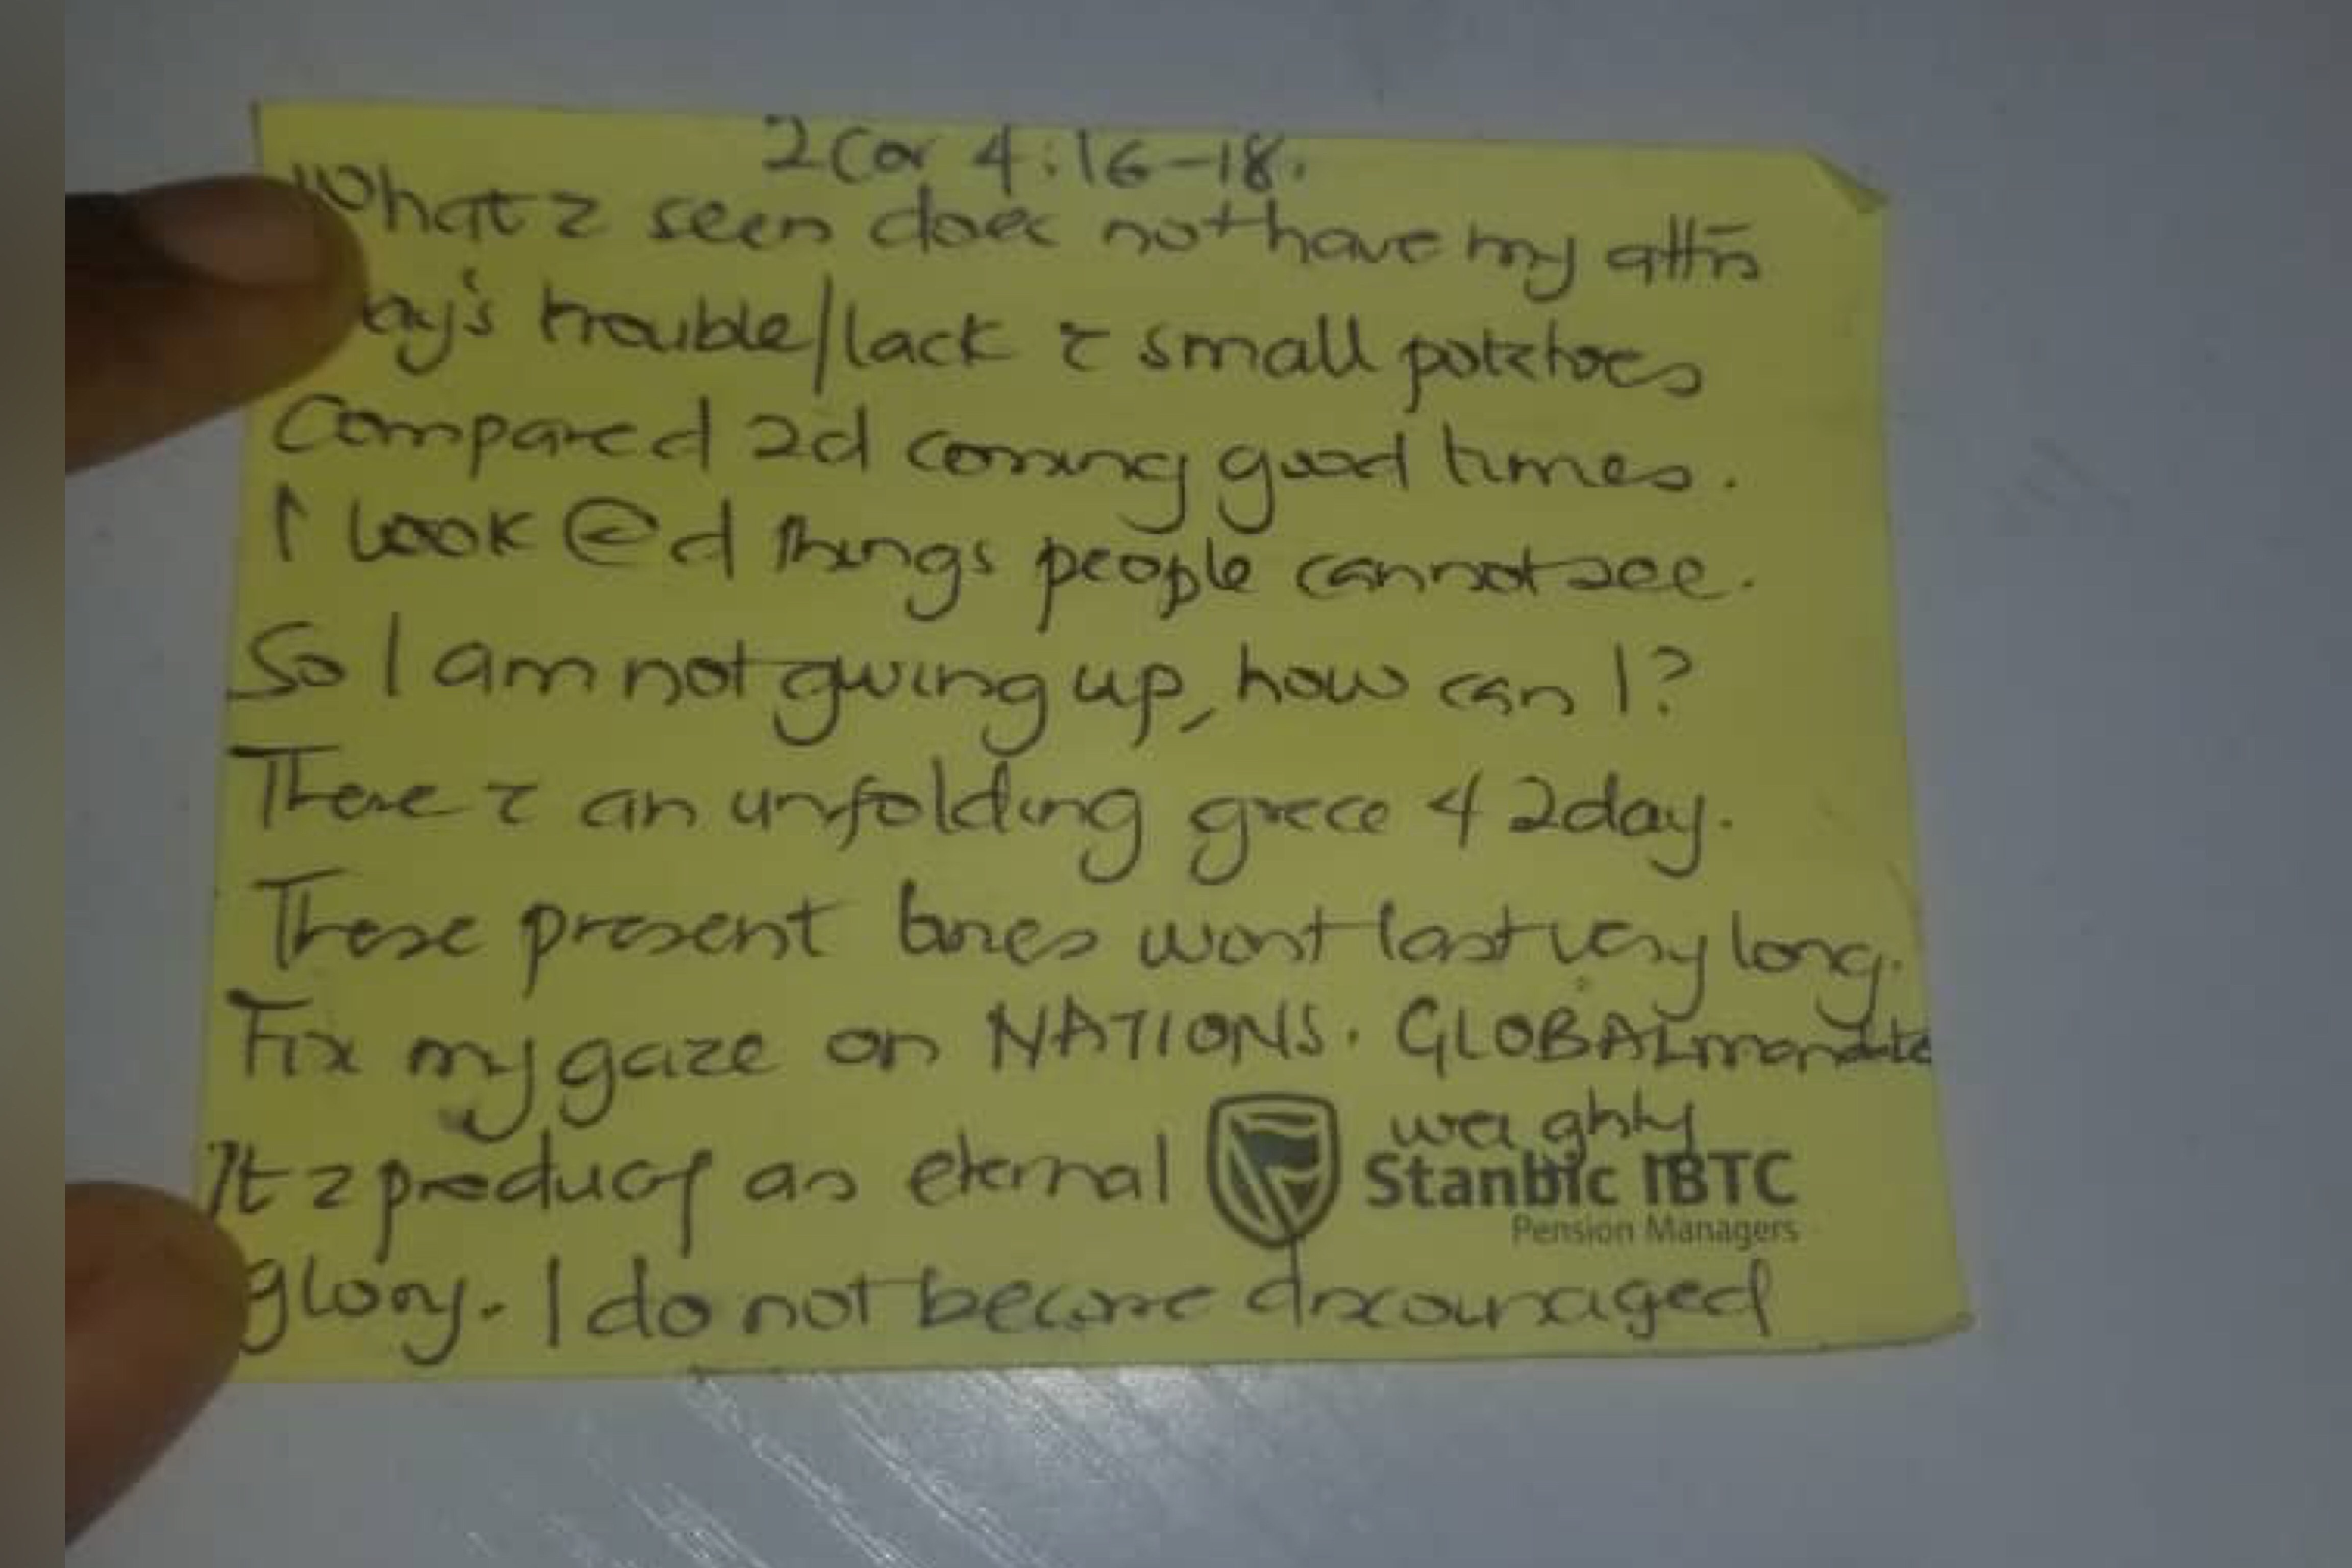 2 Cor 4:16-18.
What z seen does not have my attn
ay's trouble/lack z small potatoes
Compared 2d coming good times.
I look @ d things people cannot see.
So I am not giving up, how can I?
There z an unfolding grace 4 2day.
These present times wont last very long.
Fix my gaze on NATIONS. GLOBAL mandate
It z producg an eternal weighty
Stanbic IBTC
Pension Managers
glory. I do not become discouraged